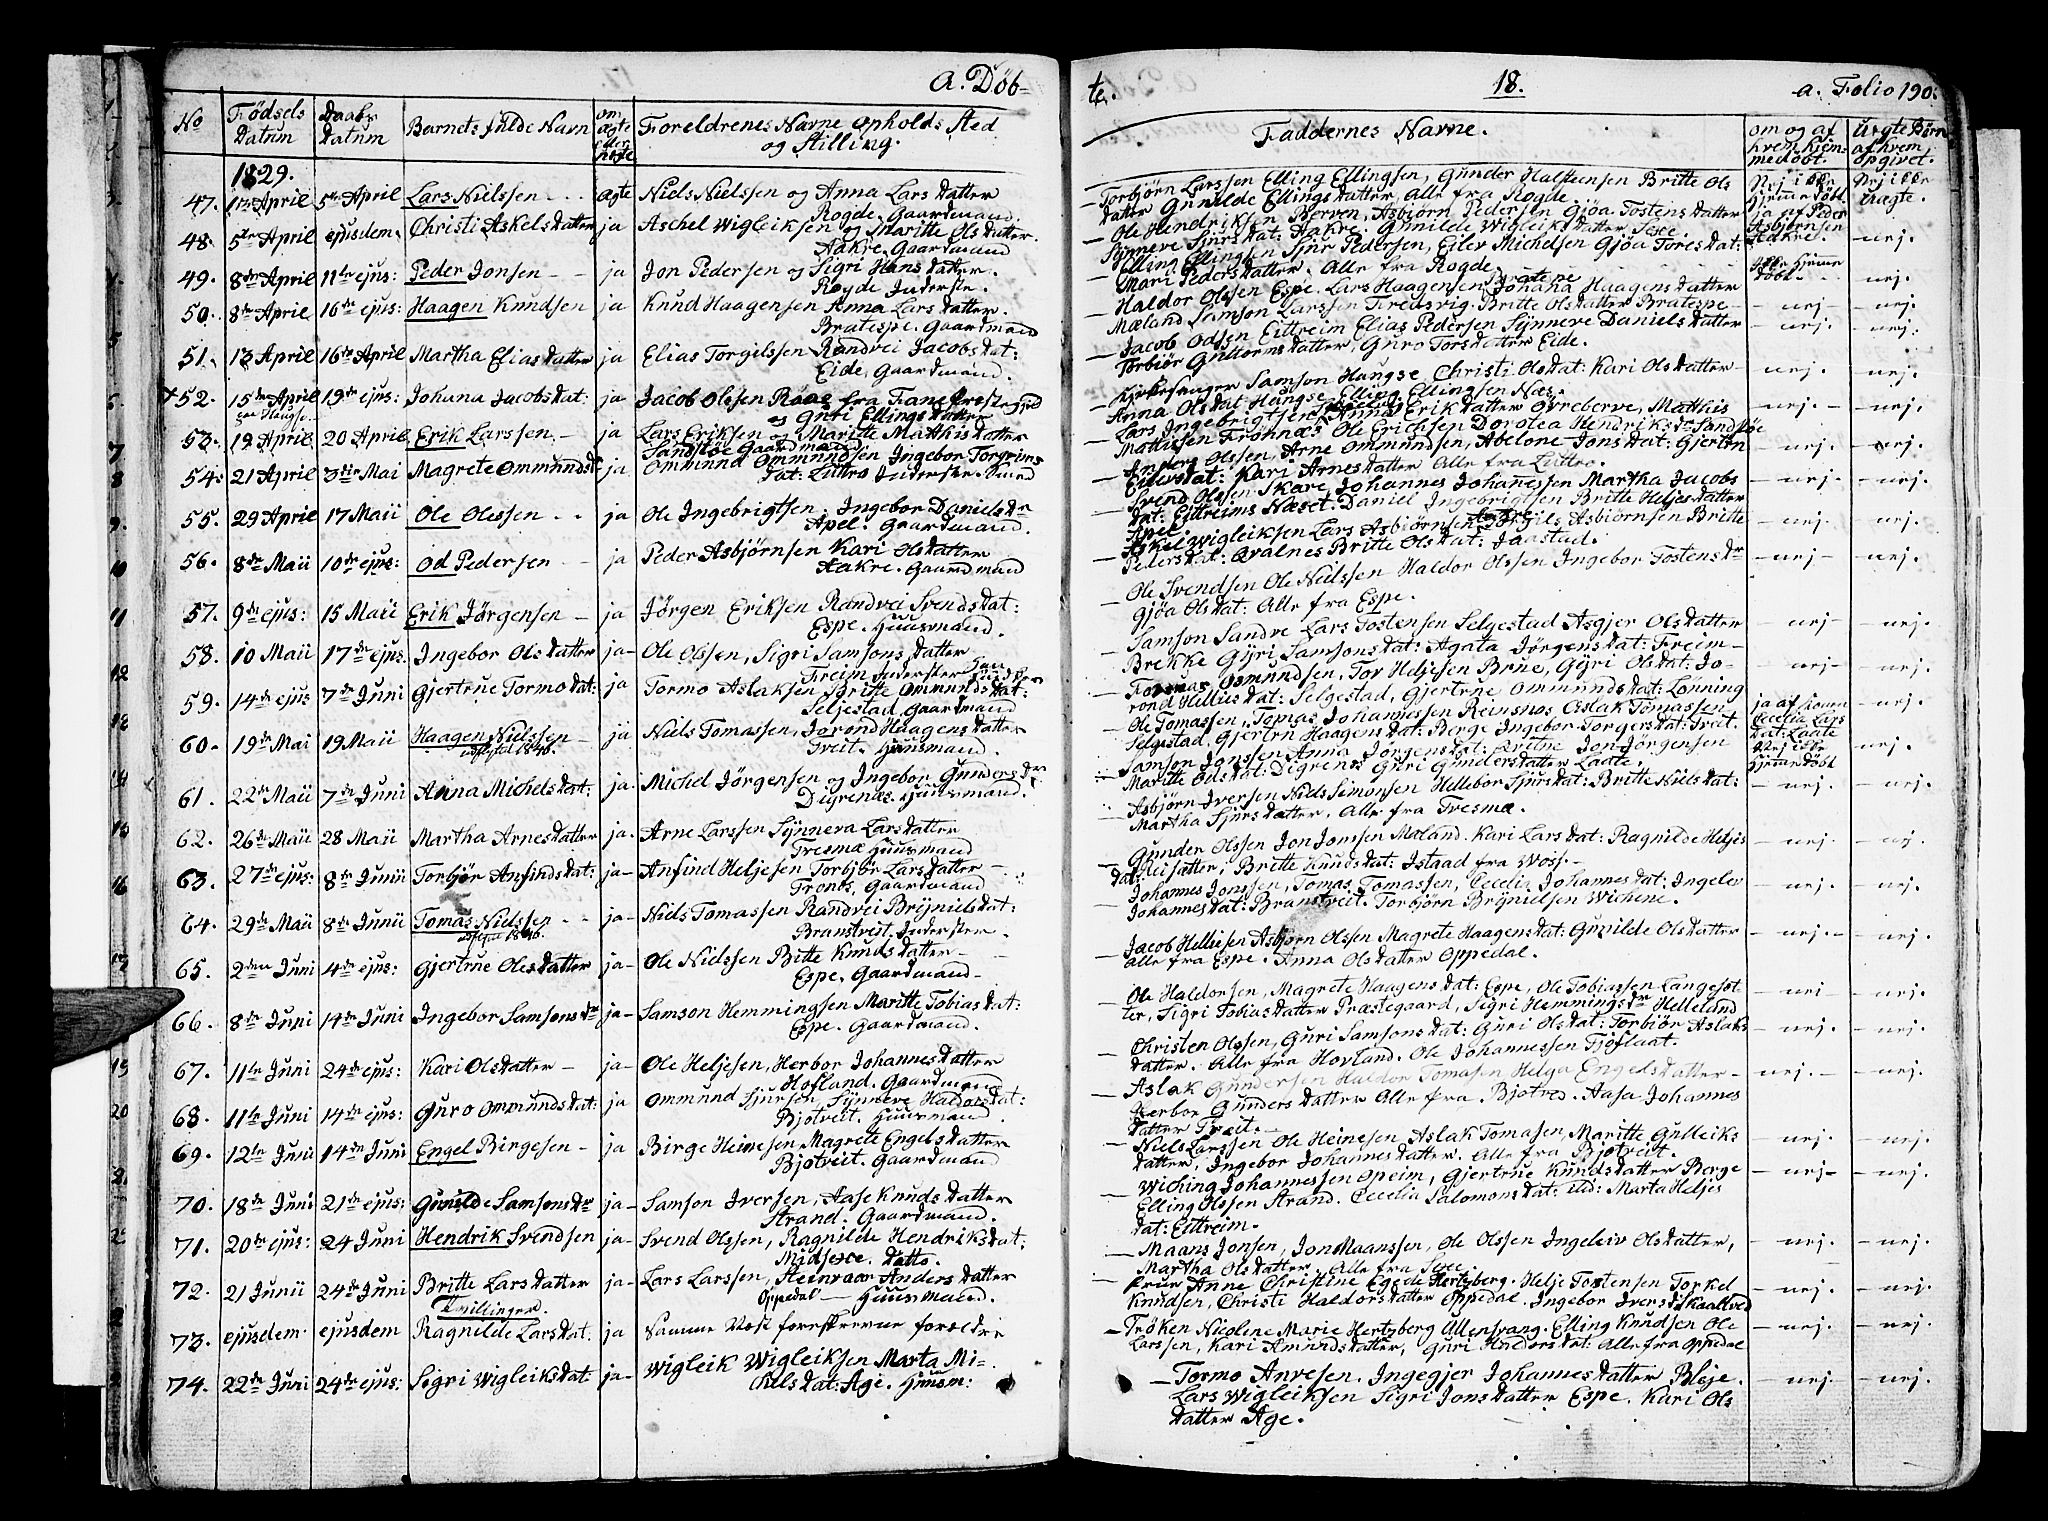 a. Døb-
No
Fødsels Datum
Daabs Datum
Barnets fulde Navn
om ægte eller uægte
Foreldrenes Navne Opholds Sted og Stilling.
1829.
47. April 5te April Lars Nielssen - - - ægte Niels Nielssen og Anna Lars Datter
Rogde. Gaardmand.
48. 5te April ejusdem. Christi Askels Datter ja Aschel Wigleiksen og Maritte Ols Datter.
Aakre. Gaardmand
49. 8de April 11te ejus: Peder Jonsen - - ja Jon Pedersen og Sigri Hans Datter.
Rogde Inderste.
50. 8de April 16de ejus: Haagen Knudsen ja Knud Haagensen Anna Lars Datter.
Bratespe. Gaardmand
51. 13 April 16de April Martha Elias Datter ja Elias Torgilssen Randvei Jacobs Dat:
Eide, Gaardmand.
52. 15de April 19de ejus: Johana Jacobs Dat: ja Jacob Olssen Røae fra Fane
og Guri Ellings Datter
53. 19 April 20 April Erik Larssen - ja Lars Eriksen og Maritte Mathis Datter
Sandstøe Gaardmand
54. 21 April 3die Mai Magrete Ommunds ja Ommund Ommundsen Ingebor Torgrims
Dat. Luttro Inderster. Smed
55. 29 April 17 Maii Ole Olessen - - ja Ole Ingebrigtsen. Ingebor Daniels Dr
Apel. Gaardmand.
56. 8de Maii 10de ejus: Od Pedersen - - ja Peder Asbjørnsen Kari Ols Datter
Aakre. Gaardmand
57. 9de ejus: 15 Maii Erik Jørgensen - ja Jørgen Eriksen Randvei Svends Dat:
Espe. Huusmand.
58. 10 Maii 17de ejus. Ingebor Ols Datter ja- Ole Olssen, Sigri Samsons Datter
Freim Inderster
59. 14de ejus 7de Juni Gjertrue Tormo Dat: ja Tormo Aslaksen Britte Ommunds Dat:
Seljestad. Gaardmand
60. 19de Mai 19 Maii Haagen Nielssen - ja Niels Tomassen, Jorond Haagens Datter
Treit. Huusmand.
61. 22de Maii 7de Juni Anna Michels Dat: ja. Michel Jørgensen og Ingebor Gunders Dr
Digrenæs. Huusmand.
62. 26de Maii 28 Maii Martha Arnes Datter ja. Arne Larssen Synneva Lars Datter
Tresmæ Huusmand
63. 27de ejus: 8de Junii Torbjør Anfinds Dat: ja- Anfind Heljesen Torbjør Lars Datter
Tronæs, Gaardmand
64. 29de Maii 8de Junii Tomas Nielssen - - ja- Niels Tomassen Randvei Brÿniels Dat:
Branstveit. Inderster.
65. 2den Juni 4de ejus: Gjertrue Oles Datter ja- Ole Nielssen Britte Knuds Datter
Espe, Gaardmand-
66. 8de Juni 14de Juni Ingebor Samsons Dr ja- Samson Hemmingsen Maritte Tobias Dat:
Espe. Gaardmand.
67. 11te Juni 24de ejus: Kari Ols Datter - ja- Ole Heljesen, Herbor Johannes Datter
Hofland. Gaardmand
68. 11te Juni 14de ejus: Guro Ommunds Dat: ja Ommund Sjursen, Synneve Haldors Dat:
Bjotveit. Huusmand
69. 12te Juni 14de Juni Engel Birgesen - ja Birge Heinesen Magrete Engels Datter
Bjotveit. Gaardmand
70. 18de Juni 21de ejus: Gunilde Samsons Dr ja- Samson Iversen, Aase Knuds Datter
Strand. Gaardmand.
71. 20de ejus: 24 Juni Hendrik Svendsen ja- Svend Olssen, Ragnilde Hendriks Dat:
Midsexe. Datto.
72. 21 Junii 24de Juni Britte Lars Datter ja- Lars Larssen, Steinvaar Anders Datter
Tvillinger.
Oppedal - Huusmand.
73. ejusdem. ejusdem Ragnilde Lars Dat: ja Samme Næst foreskrevne foreldre
74. 22de Juni 24de ejus: Sigri Wigleiks Dat: ja- Wigleik Wigleiksen Marta Mi-
chels Dat: Age. Huusm:
te.
18.
a. Folio 190.
Faddernes Navne.
om og af hvem hjem-medøbt.
Uægte Børn af hvem opgivet.
- Torbjørn Larssen Elling Ellingsen, Gunder Halstensen Britte Ols
Datter Gunilde Ellings Datter, Alle fra Rogde
- Ole Hendriksen Berven, Asbjørn Pedersen Gjøa Tostens Datter
Synneve Sjurs Dat: Aakre. Gunilde Wigleiks Datter Sexe.
ja af Peder Asbjørnsen Aakre. - nej.
- Elling Ellingsen Sjur Pedersen, Eilev Michelsen Gjøa Tores Dat:
Mari Peders Datter. Alle fra Rogde. - nej.
- Haldor Olssen Espe. Lars Haagensen Johana Haagens Datter
Mæland Samson Larssen Tredsvig. Britte Ols Datter Bratespe- - nej - - nej.
- Jacob Odsen Eittreim Elias Pedersen Synneve Daniels Datter
Torbjør Guttorms Datter, Guro Tors Datter Eide. - nej. - nej.
Kirkesanger Samson Haugse Christi Ols Dat: Kari Ols Datter
Anna Ols Dat Haugse. Elling Ellingsen Næs. - nej. - nej.
Lars Ingebrigtsen Anna Eriks Datter Ovreberve, Mathis
Mathissen Frønæs Ole Erichsen Dorotea Hendriks Dr Sandstøe - nej. - nej.
Anders Olssen, Arne Ommundsen, Abelone Jons Dat: Gjertru
Eilevs Dat: Kari Arnes Datter Alle fra Luttro. - nej. nej.
Svend Olssen Skare Johannes Johanessen Martha Jacobs
Dat: Eittreims Næset. Daniel Ingebrigtsen Britte Heljes Datter
Apel - nej. - nej.
Askel Wigleiksen Lars Asbjørnsen Torgils Asbjørnsen Britte
Peders Dat: Qvalnes Britte Ols Dat: Jaastad. - nej. - nej.
- Ole Svendsen Ole Nielssen Haldor Olssen Ingebor Tostens Dr
Gjøa Ols Dat: Alle fra Espe. - nej - nej.
- Samson Sandve Lars Tostensen Selgestad Asgjer Ols Datter
Brekke Gÿri Samsons Dat: Agata Jørgens Dat: Freim - - nej - - nej.
- Tomas Osmundsen, Tor Heljesen Brue, Gÿri Ols Dat: Jo-
rond Hellies Dat: Selgestad, Gjertrue Ommunds Dat: Lønning - nej- - nej.
- Ole Tomassen, Tomas Johannessen Reinsnos Aslak Tomassen
Selgestad. Gjertru Haagens Dat: Berge Ingebor Torgers Dat: Treit.
ja af Konen Cecelia Lars Dat: Laate nej.
Samson Jonssen Anna Jørgens Dat: Jon Jørgensen
Maritte Ols Dat: Digrenes Guri Gunders Datter Laate.
Nej ikke hjemedøbt
Asbjørn Iversen Niels Simonsen Hellebor Sjurs Dat: Britte Niels Dat:
Martha Sjurs Datter. Alle fra Tresmæ. - nej. - nej.
Gunder Olssen Jon Jonssen Maland. Kari Lars Dat: Ragnilde Heljes
Dat: Britte Knuds Dat: Istaad fra Woss. - - nej. - nej.
Johannes Jonssen, Tomas Tomassen, Cecelia Johannes Dat: Ingelev
Johannes Dat: Branstveit. Torbjørn Brÿnielsen Wichene. - nej. - nej.
Jacob Helljesen Asbjørn Olssen Magrete Haagens Dat: Gunilde Ols Datter
alle fra Espe. Anna Ols Datter Oppedal. - nej. - - nej.
Ole Haldorsen, Magrete Haagens Dat: Espe, Ole Tobiassen Langesæt
ter, Sigri Tobias Datter Præstegaard, Sigri Hemmings Dr Helleland - nej - - nej.
- Christen Olssen, Guri Samsons Dat: Guri Ols Dat: Torbjør Aslaks
Datter. Alle fra Hovland. Ole Johannessen Tjoflaat. - nej. - nej.
- Aslak Gundersen Haldor Tomasen Helga Engels Datter -
Herbor Gunders Datter Alle fra Bjotved. Aasa Johannes
Datter Treit. - - nej. - - nej.
- Niels Larssen Ole Heinesen, Aslak Tomasen, Maritte Gulleiks
Datter, Ingebor Johannes Datter. Alle fra Bjotveit. - nej. - nej.
- Wiching Johannessen Opeim, Gjertrue Knuds Datter Berge
Elling Olssen Strand. Cecelia Salomons Dat: ibid: Marta Heljes
Dat: Eittreim. - nej- - nej.
- Maans Jonsen, Jon Maanssen, Ole Olssen Ingeleiv Ols Datter,
Martha Ols Datter. Alle fra Sexe. - nej. - nej.
- Frue Anne Christine Egede Hertzberg. Helje Tostensen Torkel
Knudsen, Christi Haldors Datter Oppedal. Ingebor Ivers - nej. - nej.
- Frøken Nicoline Marie Hertzberg Ullensvang. Elling Knudsen Ole
Larssen, Kari Amunds Datter, Guri Haldors Dat: Alle fra Oppedal - nej. - nej.
- Tormo Arvesen. Ingegjer Johannes Datter Bleje.
Lars Wigleiksen Sigri Jons Datter Espe. Kari Ols
Datter Age. - nej. - nej.